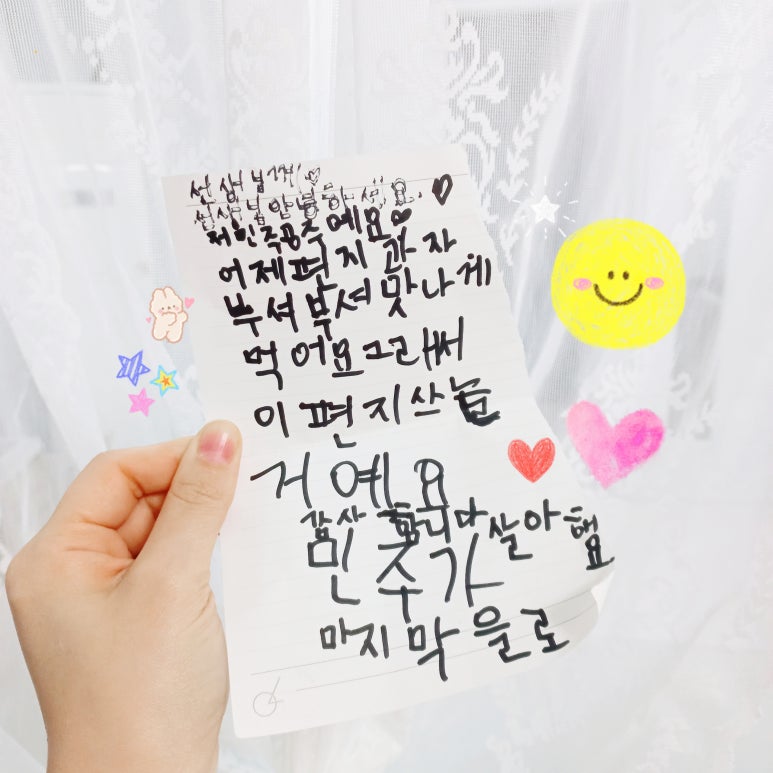 선생님께 ♡
선생님 안녕하세요. ♡
저 민주공주예요♥
어제 편지 과자
부셔부셔 맛나게
먹어요 그래써
이 편지 쓰는
거예요
감사합니다 살아해요
민주가
마지막을로